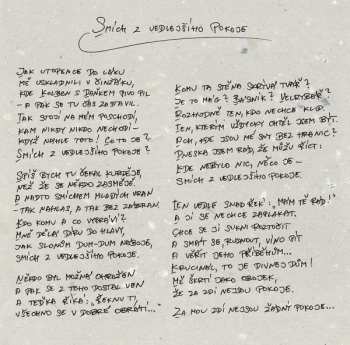 SMÍCH Z VEDLEJŠÍHO POKOJE
JAK UTOPENCE DO LÁKU
MĚ USKLADNILI V ČINŽÁKU,
KDE KOLBEN S DAŇKEM PIVO PIL
– A PAK SE TU ČAS ZASTAVIL.
JAK STOJÍ NA MÉM POSCHODÍ,
KAM NIKDY NIKDO NECHODÍ –
KDYŽ NÁHLE TOTO! CO TO JE?
SMÍCH Z VEDLEJŠÍHO POKOJE?
SPÍŠ BYCH TU ČEKAL KURDĚJE,
NEŽ ŽE SE NĚKDO ZASMĚJE.
A NADTO SMÍCHEM MLADÝCH VRAN
– TAK NAHLAS, A TAK BEZ ZÁBRAN.
KDO KOMU A CO VYPRÁVÍ?
MNĚ DĚLAJ DÁRU DO HLAVY,
JAK SLONŮM DUM-DUM NÁBOJE,
SMÍCH Z VEDLEJŠÍHO POKOJE.
NĚKDO BYL MOŽNÁ OHROŽEN
A PAK SE Z TOHO DOSTAL VEN
A TEĎKA ŘÍKÁ: „ŘEKNU TI,
VŠECHNO SE V DOBRÉ OBRÁTÍ...“
KOMU TA STĚNA SKRÝVÁ TVÁŘ?
JE TO MÁG? BÁSNÍK? VELRYBÁŘ?
ROZHODNĚ TEN, KDO NECHCE KLID.
TEN, KTERÝM VŽDYCKY CHTĚL JSEM BÝT.
ACH, KDE JSOU MÉ SNY BEZ HRANIC?
DNESKA JSEM RÁD, ŽE MŮŽU ŘÍCT:
KDE NEBYLO NIC, NĚCO JE –
SMÍCH Z VEDLEJŠÍHO POKOJE.
TEN VEDLE SVÁDÍ ŘEK: „MÁM TĚ RÁD!“
A JÍ SE NECHCE ZAPLAKAT.
CHCE SE JÍ SUKNI ROZTOČIT
A SMÁT SE, RUSNOUT, VÍNO PÍT
A VĚŘIT JEHO PŘÍBĚHŮM...
KOUCINÁL, TO JE DIVNEJ DŮM!
MĚ ŠKRTÍ JAKO OBOJEK,
ŽE ZA ZDÍ NEJSOU POKOJE.
ZA MOU ZDÍ NEJSOU ŽÁDNÝ POKOJE...